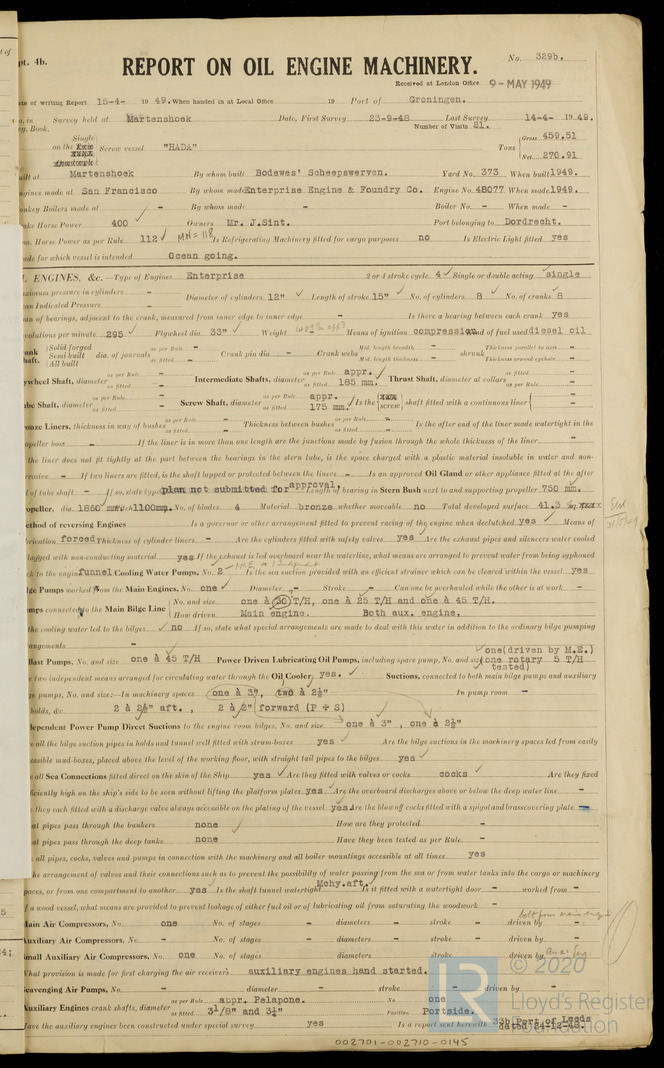 pt. 4b.
No. 329b.
REPORT ON OIL ENGINE MACHINERY.
Received at London Office 9 - MAY 1949
ate of writing Report 15-4- 19 49. When handed in at Local Office 19 Port of Groningen.
Survey held at Martenshoek Date, First Survey 23-9-48 Last Survey 14-4- 19 49.
Book. Number of Visits 21.
Single
on the Screw vessel "HADA" Tons Gross 459.51
Net 270.91
uilt at Martenshoek By whom built Bodewes' Scheepswerven. Yard No. 373 When built 1949.
ngines made at San Francisco By whom made Enterprise Engine & Foundry Co. Engine No. 48077 When made 1949.
nkey Boilers made at - By whom made - Boiler No. - When made -
ake Horse Power 400 Owners Mr. J.Sint. Port belonging to Dordrecht.
m. Horse Power as per Rule 112 MN = 118 Is Refrigerating Machinery fitted for cargo purposes no Is Electric Light fitted yes
ade for which vessel is intended Ocean going.
ENGINES, &c. —Type of Engines Enterprise 2 or 4 stroke cycle 4 Single or double acting single
aximum pressure in cylinders - Diameter of cylinders 12" Length of stroke 15" No. of cylinders 8 No. of cranks 8
an Indicated Pressure -
an of bearings, adjacent to the crank, measured from inner edge to inner edge - Is there a bearing between each crank yes
evolutions per minute 295 Flywheel dia. 33" Weight - Means of ignition compression Kind of fuel used diesel oil
Solid forged
Semi built dia. of journals as per Rule - as fitted - Crank pin dia - Crank webs Mid. length breadth - Mid. length thickness - shrunk Thickness parallel to axis - Thickness around eyehole -
All built
ywheel Shaft, diameter as per Rule - as fitted - Intermediate Shafts, diameter as per Rule appr. as fitted 185 mm. Thrust Shaft, diameter at collars as fitted - as per Rule -
ube Shaft, diameter as per Rule - as fitted - Screw Shaft, diameter as per Rule appr. as fitted 175 mm. Is the screw shaft fitted with a continuous liner -
onze Liners, thickness in way of bushes as per Rule - as fitted - Thickness between bushes as per Rule - as fitted - Is the after end of the liner made watertight in the
opeller boss - If the liner is in more than one length are the junctions made by fusion through the whole thickness of the liner -
the liner does not fit tightly at the part between the bearings in the stern tube, is the space charged with a plastic material insoluble in water and non-
rrosive - If two liners are fitted, is the shaft lapped or protected between the liners - Is an approved Oil Gland or other appliance fitted at the after
d of tube shaft - If so, state type plan not submitted for approval. Length of bearing in Stern Bush next to and supporting propeller 750 mm.
opeller. dia. 1860 mm Pitch 1100mm. No. of blades 4 Material bronze whether moveable no Total developed surface 41.3 sq.
ethod of reversing Engines Is a governor or other arrangement fitted to prevent racing of the engine when declutched yes Means of
brication forced Thickness of cylinder liners - Are the cylinders fitted with safety valves yes Are the exhaust pipes and silencers water cooled
lagged with non-conducting material yes If the exhaust is led overboard near the waterline, what means are arranged to prevent water from being syphoned
ck to the engine funnel Cooling Water Pumps, No. 2 Is the sea suction provided with an efficient strainer which can be cleared within the vessel yes
lge Pumps worked from the Main Engines, No. one Diameter - Stroke - Can one be overhauled while the other is at work -
mps connected to the Main Bilge Line No. and size one à 30 T/H, one à 25 T/H and one à 45 T/H.
How driven Main engine. Both aux. engine.
the cooling water led to the bilges no If so, state what special arrangements are made to deal with this water in addition to the ordinary bilge pumping
angements -
llast Pumps, No. and size one à 45 T/H Power Driven Lubricating Oil Pumps, including spare pump, No. and size one(driven by M.E.)
one rotary 5 T/H
tested)
two independent means arranged for circulating water through the Oil Cooler yes. Suctions, connected to both main bilge pumps and auxiliary
ge pumps, No. and size:—In machinery spaces one à 3", two à 2½" In pump room -
holds, &c. 2 à 2½" aft. , 2 à 2" forward (P + S)
dependent Power Pump Direct Suctions to the engine room bilges, No. and size one à 3" , one à 2½"
re all the bilge suction pipes in holds and tunnel well fitted with strum-boxes yes Are the bilge suctions in the machinery spaces led from easily
essible mud-boxes, placed above the level of the working floor, with straight tail pipes to the bilges yes
e all Sea Connections fitted direct on the skin of the Ship yes Are they fitted with valves or cocks cocks Are they fixed
fficiently high on the ship's side to be seen without lifting the platform plates yes Are the overboard discharges above or below the deep water line -
e they each fitted with a discharge valve always accessible on the plating of the vessel. yes Are the blow off cocks fitted with a spigot and brass covering plate -
at pipes pass through the bunkers none How are they protected -
at pipes pass through the deep tanks none Have they been tested as per Rule -
all pipes, cocks, valves and pumps in connection with the machinery and all boiler mountings accessible at all times yes
the arrangement of valves and their connections such as to prevent the possibility of water passing from the sea or from water tanks into the cargo or machinery
paces, or from one compartment to another yes Is the shaft tunnel watertight Mchy.aft. Is it fitted with a watertight door - worked from -
f a wood vessel, what means are provided to prevent leakage of either fuel oil or of lubricating oil from saturating the woodwork -
ain Air Compressors, No. one No. of stages - diameters - stroke - driven by belt from main engine
Auxiliary Air Compressors, No. - No. of stages - diameters - stroke - driven by -
mall Auxiliary Air Compressors, No. one No. of stages - diameters - stroke - driven by Aux. Eng
What provision is made for first charging the air receivers auxiliary engines hand started.
cavenging Air Pumps, No. - diameter - stroke - driven by -
uxiliary Engines crank shafts, diameter as per Rule appr. Pelapone. as fitted 3⅛" and 3¼" No one Position Portside.
ave the auxiliary engines been constructed under special survey yes Is a report sent herewith 33b Port of Leeds
dated 24-12-48.
© 2020
LR
Lloyd's Register
Foundation
002701-002710-0145